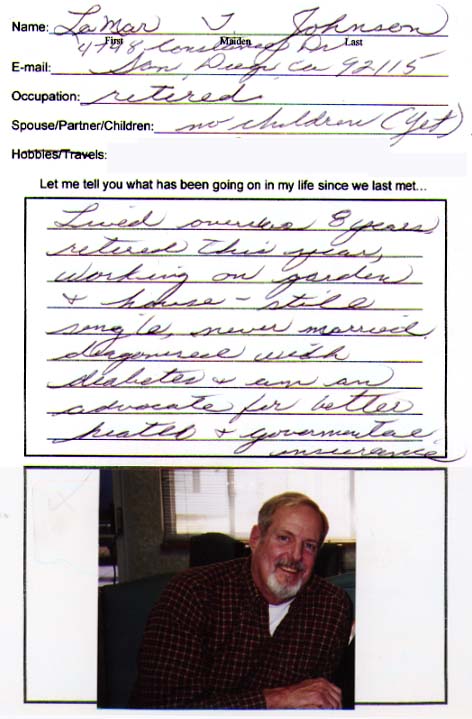 Name: LaMar J Johnson
First Maiden Last
4748 Constance Dr
E-mail: San Diego, Ca 92115
Occupation: retered
Spouse/Partner/Children: no children (yet)
Hobbies/Travels:
Let me tell you what has been going on in my life since we last met...
Lived overseas 8 years,
retired this year,
working on garden
& house - still
single, never married.
with
diabetes & am an
advocate for better
health & govermental
insurance